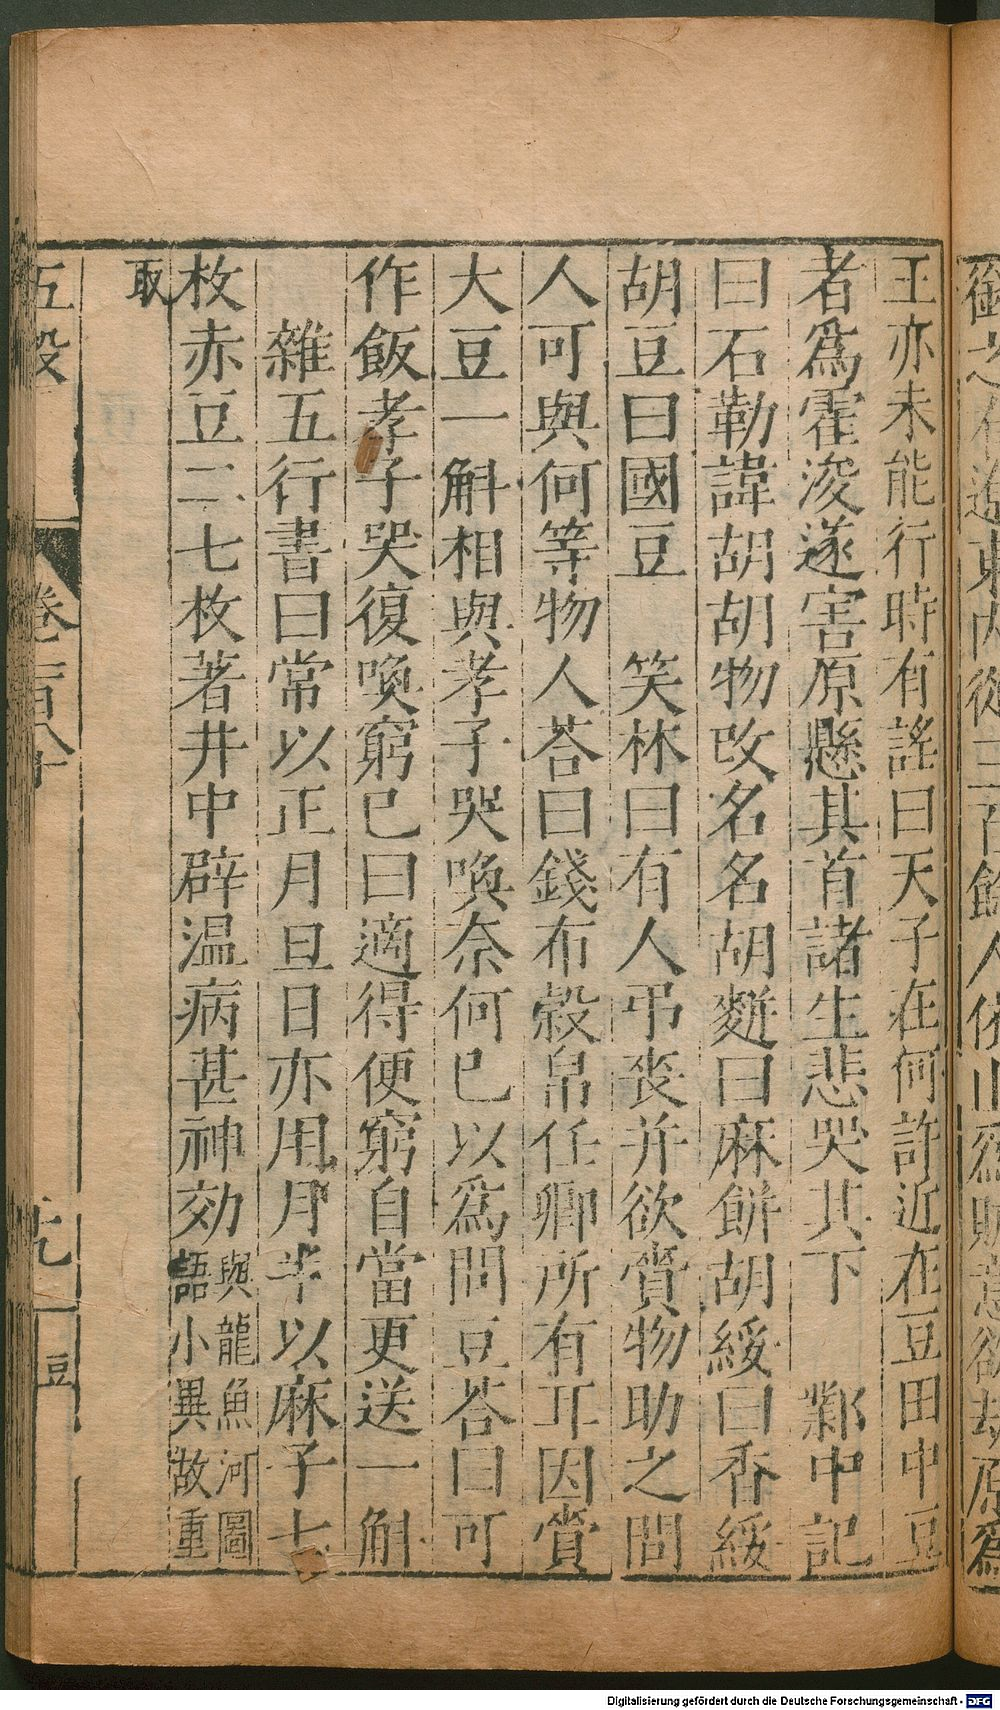 王亦未能行時有謠曰天子在何許近在豆田中豆
者爲霍浚遂害原懸其首諸生悲哭其下　鄴中記
曰石勒諱胡胡物改名名胡𪌘曰麻餅胡綏曰香綏
胡豆曰國豆　笑林曰有人弔喪并欲賫物助之問
人可與何等物人荅曰錢布榖帛任卿所有耳因賫
大豆一斛相與孝子哭喚奈何已以爲問豆荅曰可
作飯孝子哭復喚窮已曰適得便窮自當更送一斛
雜五行書曰常以正月旦日亦用月半以麻子七
枚赤豆二七枚著井中辟温病甚神効與龍魚河圖
語小異故重
取
五穀
卷一百八十
十九
豆
Digitalisierung gefördert durch die Deutsche Forschungsgemeinschaft - DFG